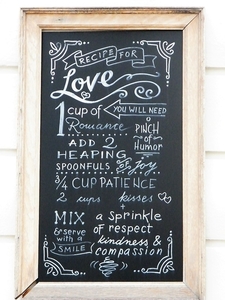 RECIPE FOR
Love
1 cup of Romance
YOU WILL NEED
a PINCH of Humor
ADD 2 HEAPING
SPOONFULS OF Joy
3/4 CUP PATIENCE
2 cups kisses
+
MIX & serve with a SMILE
a sprinkle of respect
kindness & compassion